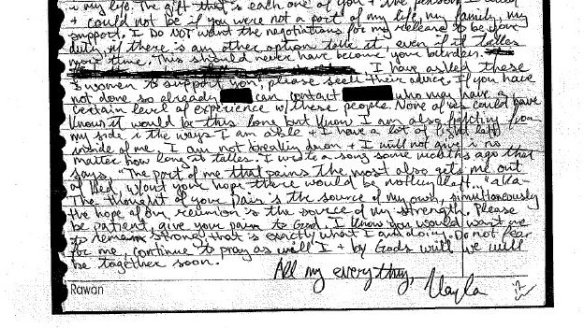 in my life. The gift that is each one of you + the person I
+ could not be if you were not a part of my life, my family, my
support. I DO NOT want the negotiations for my release to be your
duty, if there is any other option take it, even if it takes
more time. This should never have become your burden.
I have asked these
women to support you, please seek their advice. If you have
not done so already can contact who may have a
certain level of experience w/ these people. None of us could have
known it would be this long but know I am also fighting from
my side in the ways I am able + I have a lot of fight left
inside of me. I am not breaking down + I will not give in no
matter how long it takes. I wrote a song some months ago that
says, "The part of me that pains the most also gets me out
of bed, w/out your hope there would be nothing left..." aka
The thought of your pain is the source of my own, simultaneously
the hope of our reunion is the source of my strength. Please
be patient, give your pain to God. I know you would want me
to remain strong. That is exactly what I am doing. Do not fear
for me, continue to pray as will I + by God's will we will
be together soon.
All my everything, Kayla
Rawan